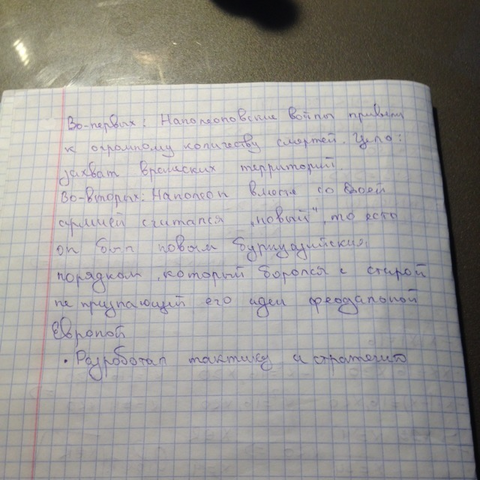 Во-первых: Наполеоновские войны привели
к огромному количеству смертей. Цель:
захват вражеских территорий
Во-вторых: Наполеон вместе со своей
армией считался "новый", то есть
он был новым буржуазийским
порядком, который боролся с старой
не признающий его идеи феодальной
Европой
• Разработал тактику и стратегию